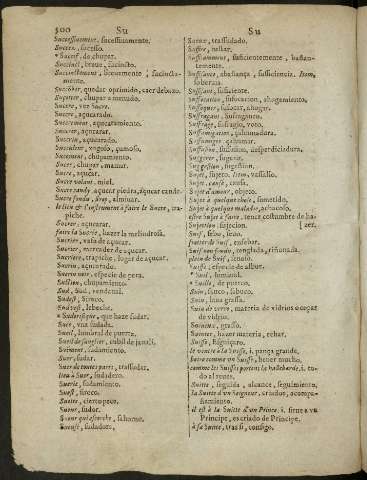 500 Su
Successivement, sucessivamente.
Succez, sucesso.
* Succif, de chupar.
Succinct, breue, sucinto.
Succinctement, breuemente, sucintamente.
Sugoter, chupar a menudo.
Sucre, ver Sucre.
Sucre, açucarado.
Sucrement, açucaramiento.
Sucrer, açucarar.
Sucrin, açucarado.
Succulent, xugoso, çumoso.
Succement, chupamiento.
Succer, chupar, mamar.
Sucre, açucar.
Sucre volant, miel.
Sucre candy, açucar piedra, açucar cande.
Sucre fondu, sirop, almiuar.
le lieu & l'instrument à faire le Sucre, trapiche.
Sucrer, açucarar.
faire la Sucrée, hazer la melindrosa.
Sucrier, mercader de açucar.
Sucriere, trapiche, lugar de açucar.
Sucrin, açucarado.
Sucrin noir, especie de pera.
Suction, chupamiento.
Sud, Sud, vendaual.
Sudest, siroco.
Sud vest, lebeche.
* Sudorifique, que haze sudar.
Suée, vna sudada.
Sueil, lumbral de puerta.
Sueil de sanglier, cubil de jauali.
Suement, sudamiento.
Suer, sudar.
Suer de toutes parts, trassudar.
lieu à Suer, sudadero.
Suerie, sudamiento.
Suest, siroco.
Suette, cierto pece.
Sueur, sudor.
Sueur qui eschet,
Sueux, sudadero.
Su
Sueux, trassudado.
Suffire, bastar.
Suffisamment, suficientemente, bastantemente.
Suffisance, abastança, suficiencia. Item, soberuia.
Suffisant, suficiente.
Suffocation, sufocacion, ahogamiento.
Suffoquer, sufocar, ahogar.
Suffragant, sufraganeo.
Suffrage, sufragio, voto.
Suffumigation, çahumadura.
Suffumiger, çahumar.
Suggerer, sugerir.
Suggestion, sugestion.
Sujet, sujeto. Item, vassallo.
Sujet, cause, causa.
Sujet d'amour, objeto.
Sujet à quelque chose, sometido.
Sujet à quelque maladie, achacoso.
estre Sujet à faire, tener costumbre de hazer.
Sujettion, sujecion.
Suif, seuo.
frotter de Suif, ensebar.
Suif non fondu, rinonada.
plein de Suif, seuoso.
Suiffe, especie de albur.
* Suil, lumbral.
* Suille, de puerco.
Suin, suco, sabuco.
Suin, lana grassa.
Suin de verre, materia de vidrios o espar de vidrio.
Suineux, grasso.
Suinter, hazer materia, echar.
Suisse, Esguiçaro.
le ventre à la Suisse, i. pança grande.
boire comme un Suisse, beuer mucho.
comme les Suisses portent la hallebarde, i. tudo al reues.
Suitte, seguida, alcance, seguimiento.
la Suitte d'un Seigneur, criados, acompañamiento.
il est à la Suitte d'un Prince, i. sirue a vn Principe, es criado de Principe.
à sa Suitte, tras si, consigo.